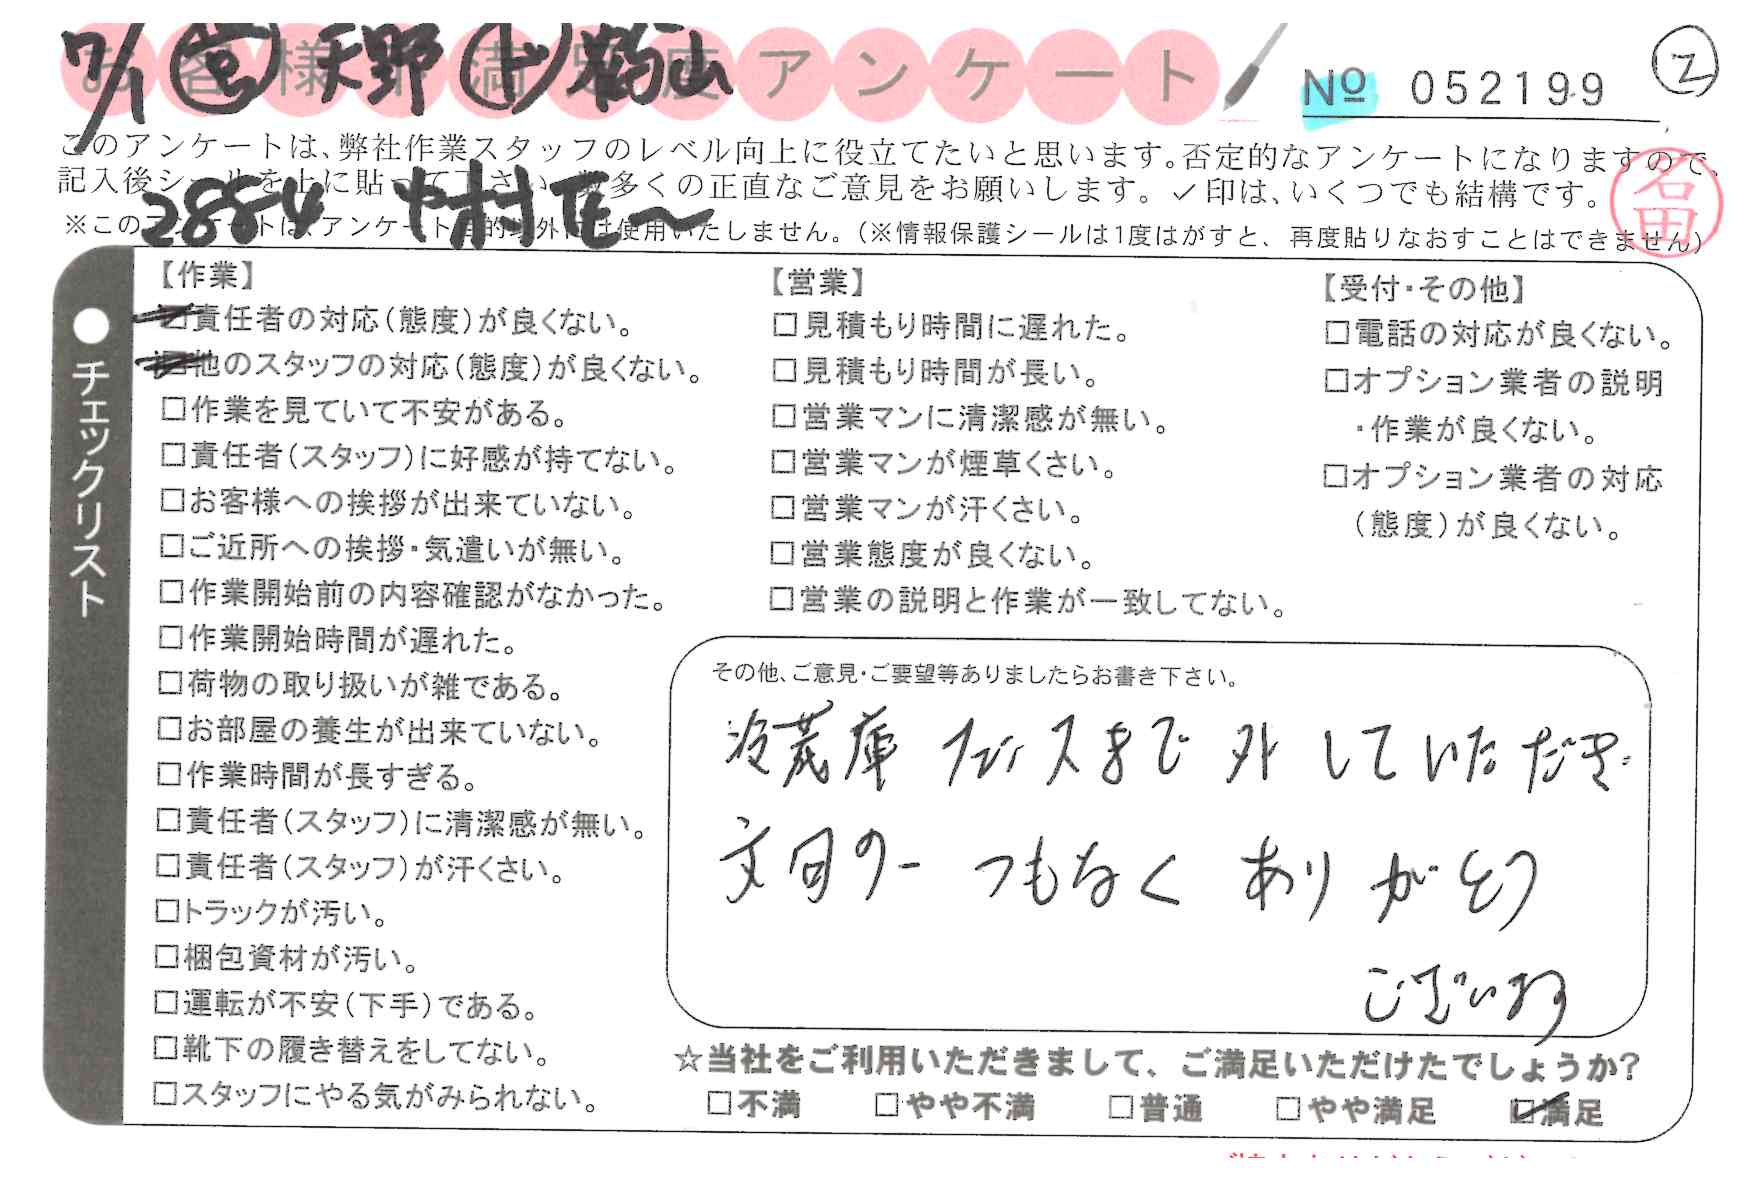 お客様不満足度アンケート
7/1 営 天野
№ 052199
2
このアンケートは、弊社作業スタッフのレベル向上に役立てたいと思います。否定的なアンケートになりますので、
記入後シールを上に貼って下さい。数多くの正直なご意見をお願いします。✓印は、いくつでも結構です。
2884
名田
※このアンケートは、アンケート目的以外には使用いたしません。(※情報保護シールは1度はがすと、再度貼りなおすことはできません)
●チェックリスト
【作業】
☑責任者の対応(態度)が良くない。
☑他のスタッフの対応(態度)が良くない。
□作業を見ていて不安がある。
□責任者(スタッフ)に好感が持てない。
□お客様への挨拶が出来ていない。
□ご近所への挨拶・気遣いが無い。
□作業開始前の内容確認がなかった。
□作業開始時間が遅れた。
□荷物の取り扱いが雑である。
□お部屋の養生が出来ていない。
□作業時間が長すぎる。
□責任者(スタッフ)に清潔感が無い。
□責任者(スタッフ)が汗くさい。
□トラックが汚い。
□梱包資材が汚い。
□運転が不安(下手)である。
□靴下の履き替えをしてない。
□スタッフにやる気がみられない。
【営業】
□見積もり時間に遅れた。
□見積もり時間が長い。
□営業マンに清潔感が無い。
□営業マンが煙草くさい。
□営業マンが汗くさい。
□営業態度が良くない。
□営業の説明と作業が一致してない。
【受付・その他】
□電話の対応が良くない。
□オプション業者の説明
・作業が良くない。
□オプション業者の対応
(態度)が良くない。
その他、ご意見・ご要望等ありましたらお書き下さい。
冷蔵庫 まで 外していただき
文句の一つもなく ありがとう
ございます
☆当社をご利用いただきまして、ご満足いただけたでしょうか?
□不満 □やや不満 □普通 □やや満足 ☑満足